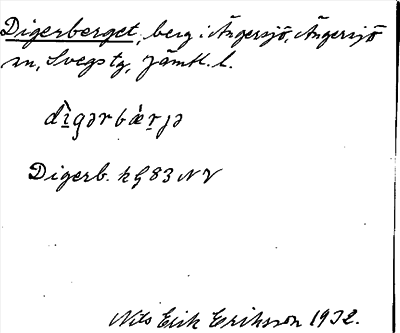 Digerberget, berg i Ängersjö, Ängersjö
sn, Svegs tg, Jämtl. l.
dìgərbǽrjə
Digerb. k G 83 NV
Nils Erik Eriksson 1932.